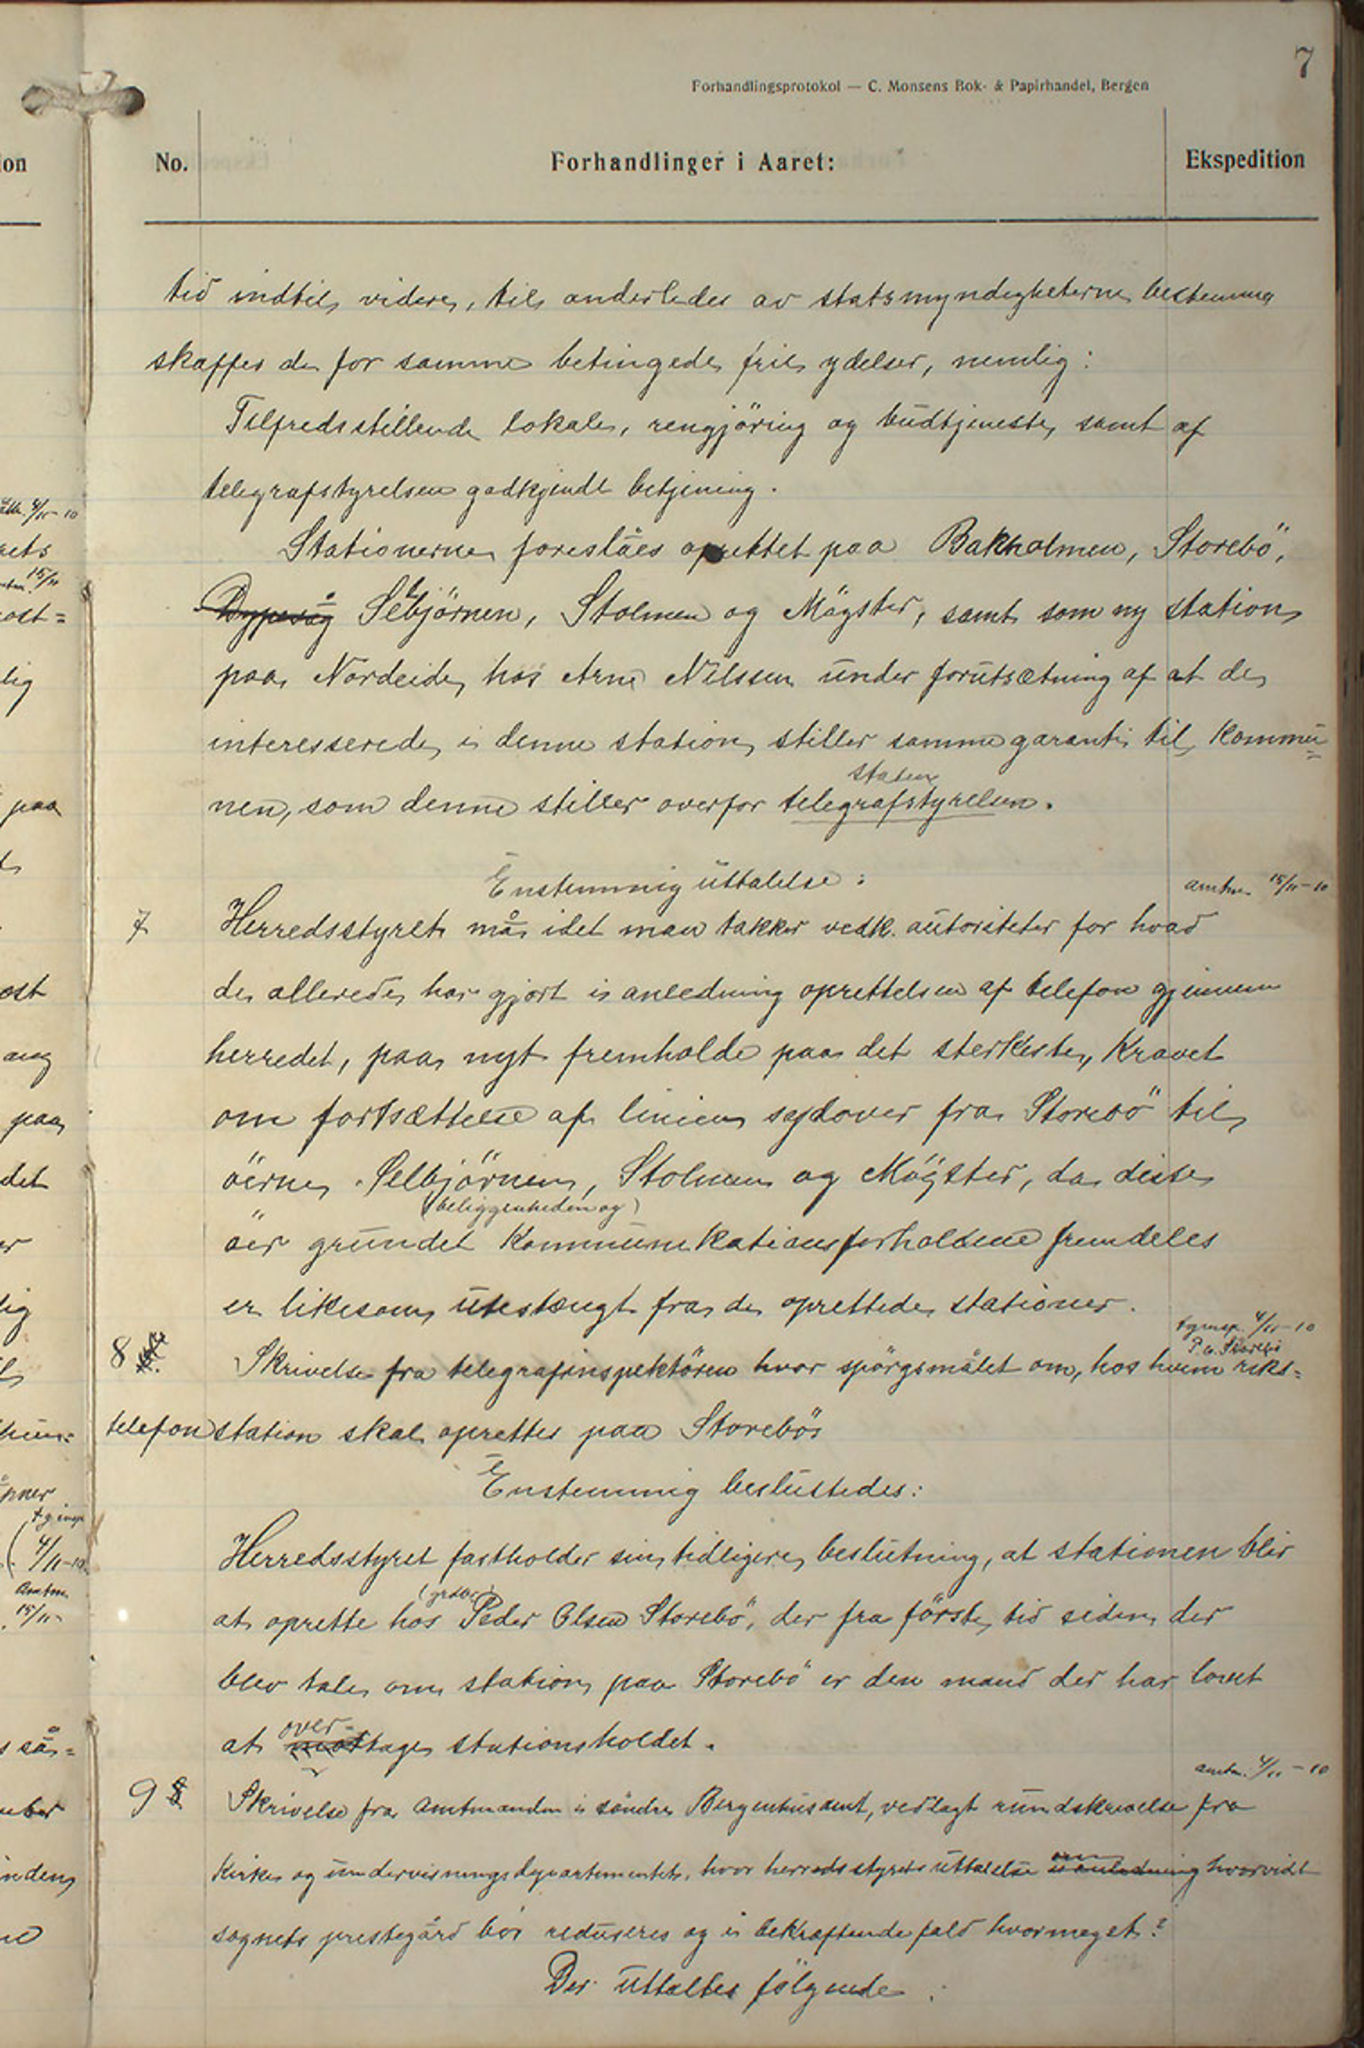 7
Forhandlingsprotokol — C. Monsens Bok- & Papirhandel, Bergen
No.
Forhandlinger i Aaret:
Ekspedition
tid indtil videre, til anderledes av statsmyndigheterne bestemmes
skaffes de for samme betingede frie ydelser, nemlig:
Tilfredsstillende lokale, rengjöring og budtjeneste, samt af
telegrafstyrelsen godkjendt betjening.
Stationerne foreslåes oprettet paa Bakholmen, Storebö,
Selbjörnen, Stolmen og Mögster, samt som ny station
paa Nordeide hos Arne Nilssen under forutsætning af at de
interesserede i denne station stiller samme garanti til kommu=
staten
nen, som denne stiller overfor telegrafstyrelsen.
Enstemmig uttalelse:
amtm. 15/11-10
7
Herredsstyret må idet man takker vedk. autoriteter for hvad
de allerede har gjort i anledning oprettelsen af telefon gjennem
herredet, paa nyt fremholde paa det sterkeste, kravet
om fortsættelse af linien sydover fra Storebö til
öerne Selbjörnen, Stolmen og Mögster, da disse
(beliggenheden og)
öer grundet kommunikationsforholdene fremdeles
er likesom utestængt fra de oprettede stationer.
tginsp. 4/11-10
P. O. Storebö
8
Skrivelse fra telegrafinspektören hvor spörgsmålet om, hos hvem riks=
telefonstation skal oprettes paa Storebö
Enstemmig besluttedes:
Herredsstyret fastholder sin tidligere beslutning, at stationen blir
at oprette hos Peder Olsen Storebö, der fra förste tid siden der
blev tale om station paa Storebö er den mand der har lovet
over-
at mottage stationsholdet.
amtm. 4/11-10
9
Skrivelse fra amtmanden i söndre Bergenhus amt, vedlagt rundskrivelse fra
om
Kirke og undervisningsdepartementet, hvor herredsstyrets uttalelse i anledning hvorvidt
sognets prestegård bör reduseres og i bekræftende fald hvormeget?
Der uttaltes fölgende: